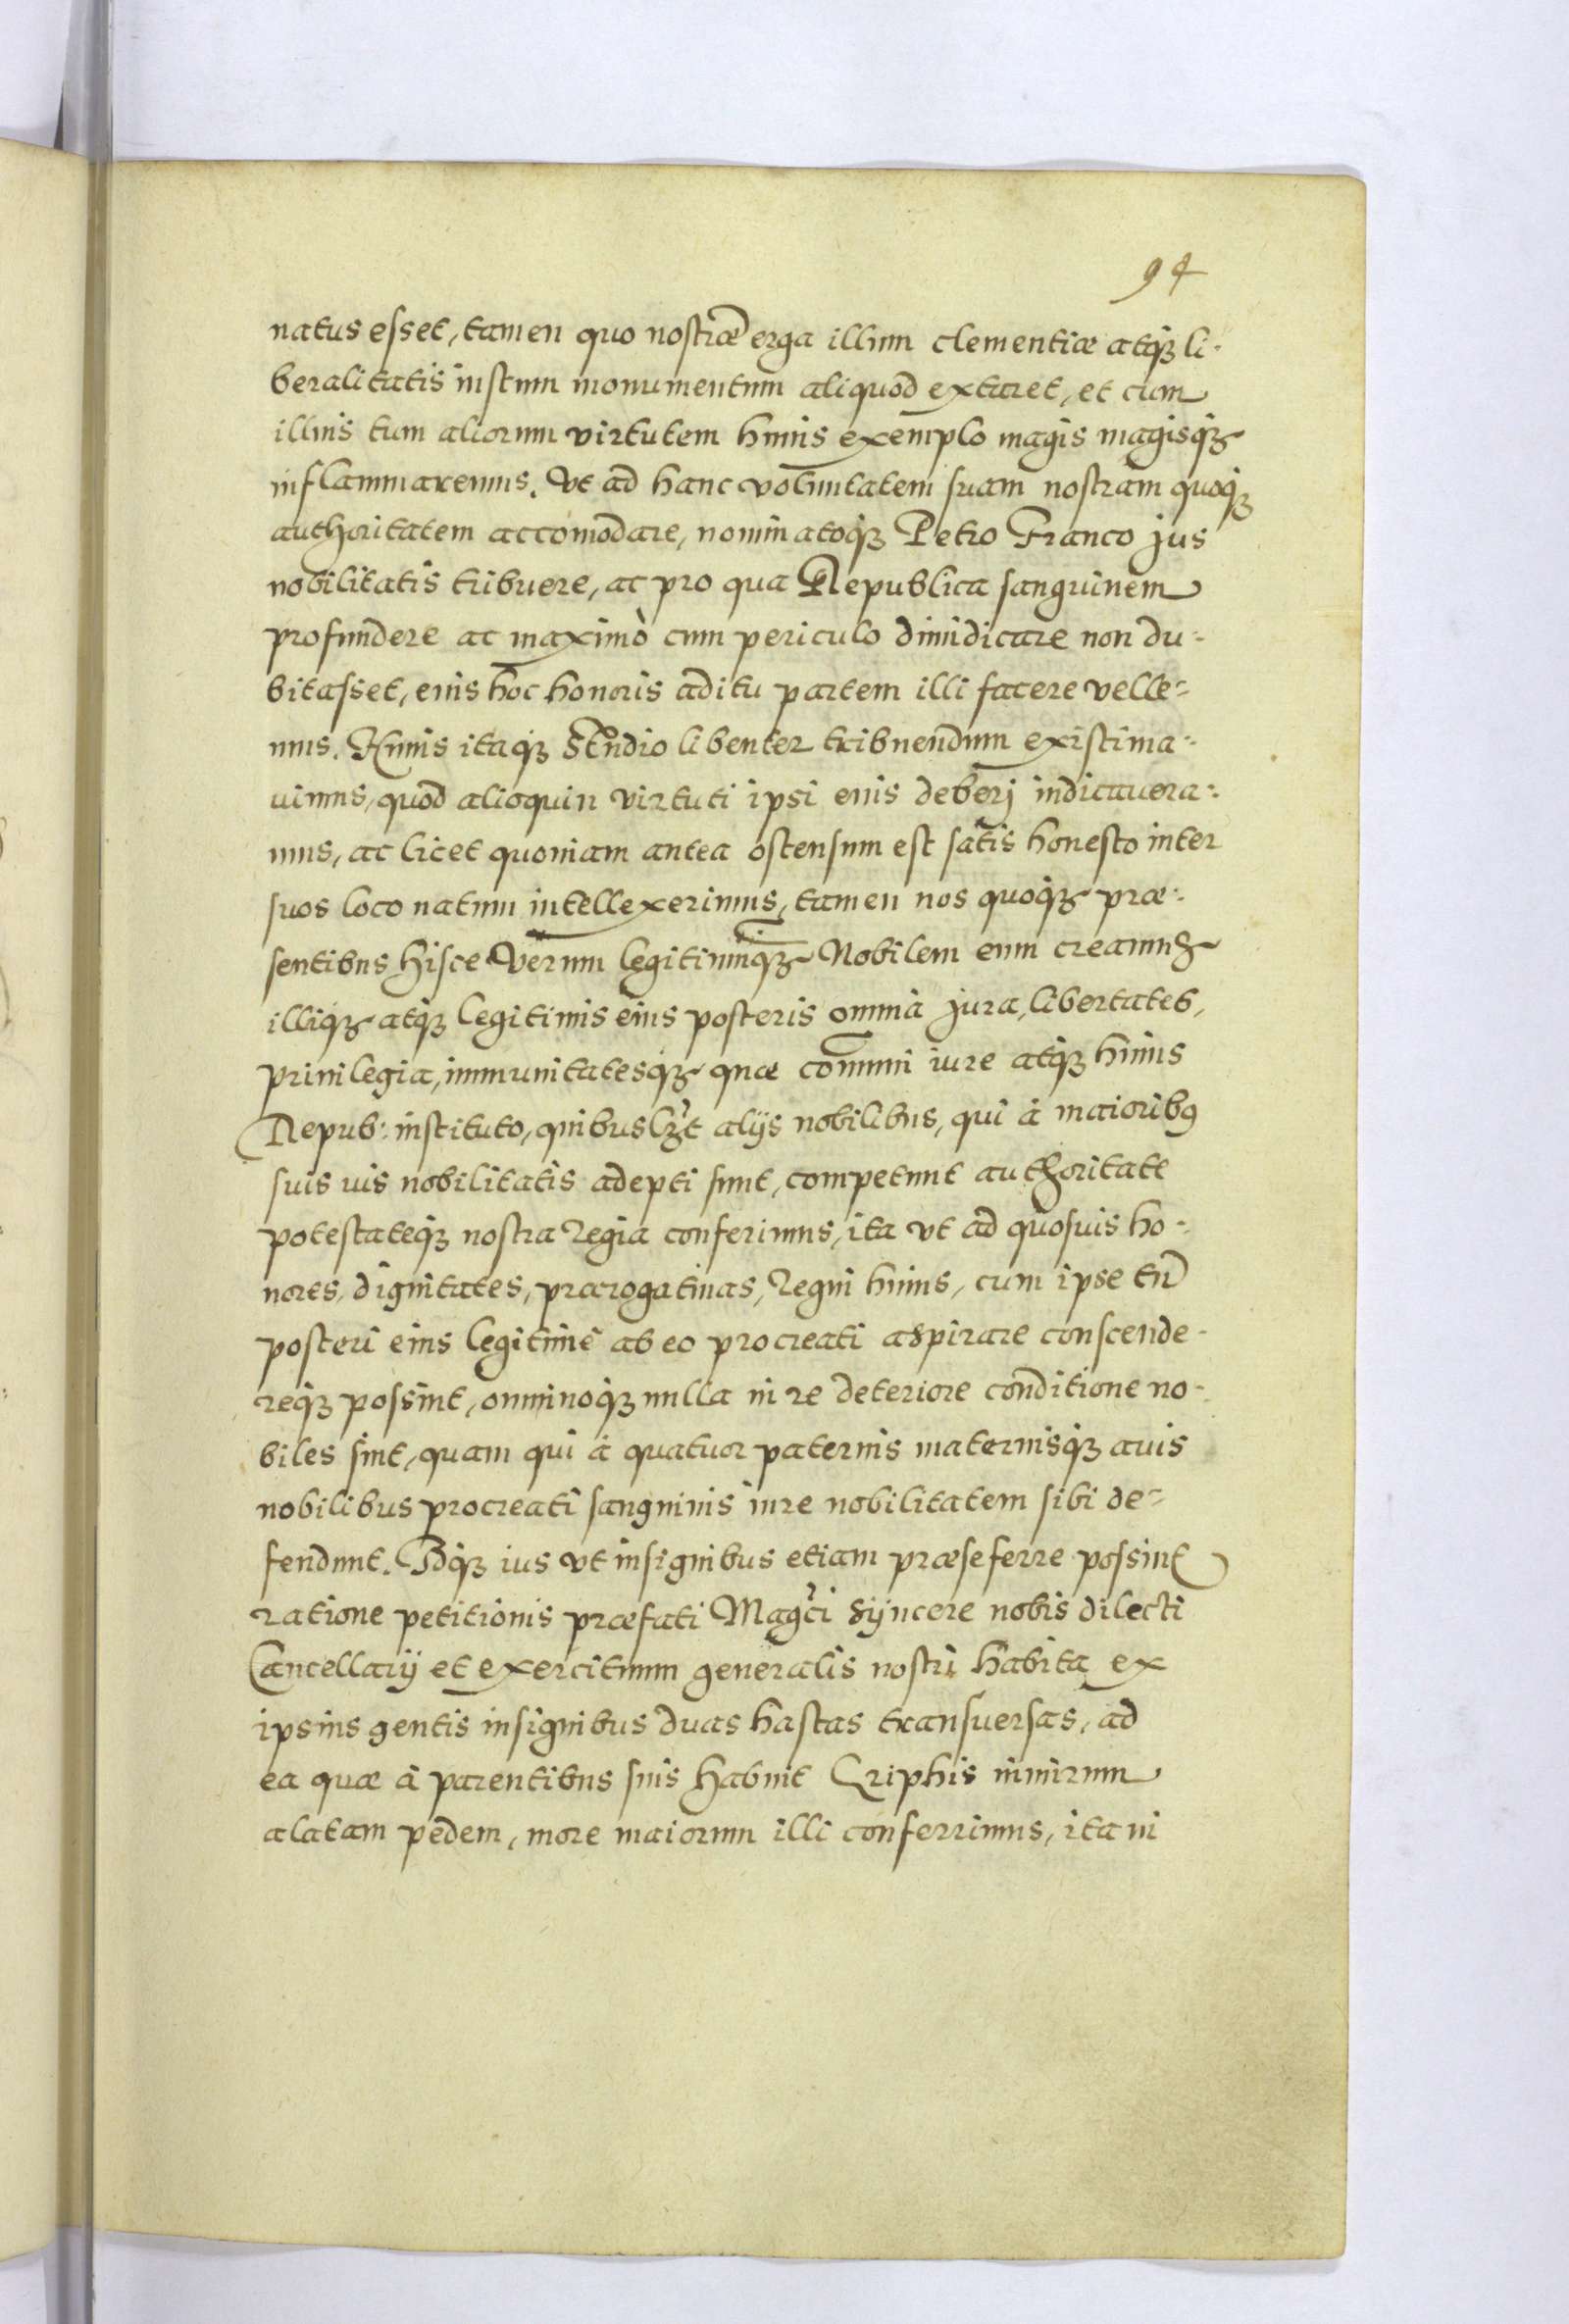 94
natus esset, tamen quo nostræ erga illum clementiæ atq₃ li-
beralitatis iustum monumentum aliquod extaret, et cum
illius tum aliorum virtutem huius exemplo magis magisq₃
inflammaremus. Vt ad hanc voluntatem suam nostram quoq₃
authoritatem accomodare, nominatoq₃ Petro Franco jus
nobilitatis tribuere, ac pro qua Republica sanguinem
profundere ac maximò cum periculo dimidicare non du-
bitasset, eius hoc honoris aditu partem illi facere velle-
mus. Huius itaq₃ studio libenter tribuendum existima-
uimus, quod alioquin virtuti ipsi eius deberj iudicauera-
mus, ac licet quoniam antea ostensum est satis honesto inter
suos loco natum intellexerimus, tamen nos quoq₃ præ-
sentibus hisce verum legitimumq₃ Nobilem eum creamus
illiq₃ atq₃ legitimis eius posteris omnia jura, libertates,
priuilegia, immunitatesq₃ quæ communi iure atq₃ huius
Repub: instituto, quibuslꝫt alijs nobilibus, qui à maioribꝰ
suis ius nobilitatis adepti sunt, competunt authoritate
potestateq₃ nostra Regia conferimus, ita vt ad quosuis ho-
nores, dignitates, prærogatiuas, Regni huius, cum ipse tũ
posteri eius legitimè ab eo procreati aspirare conscende-
req₃ possint, omninoq₃ nulla in re deteriore conditione no-
biles sint, quam qui à quatuor paternis maternisq₃ auis
nobilibus procreati sanguinis iure nobilitatem sibi de-
fendunt. Idq₃ ius vt insignibus etiam præseferre possint
ratione petitionis præfati Magci syncere nobis dilecti
Cancellarij et exercituum generalis nostri habita ex
ipsius gentis insignibus duas hastas transuersas, ad
ea quæ à parentibus suis habuit Griphis nimirum
alatam pedem, more maiorum illi conferrimus, ita ni